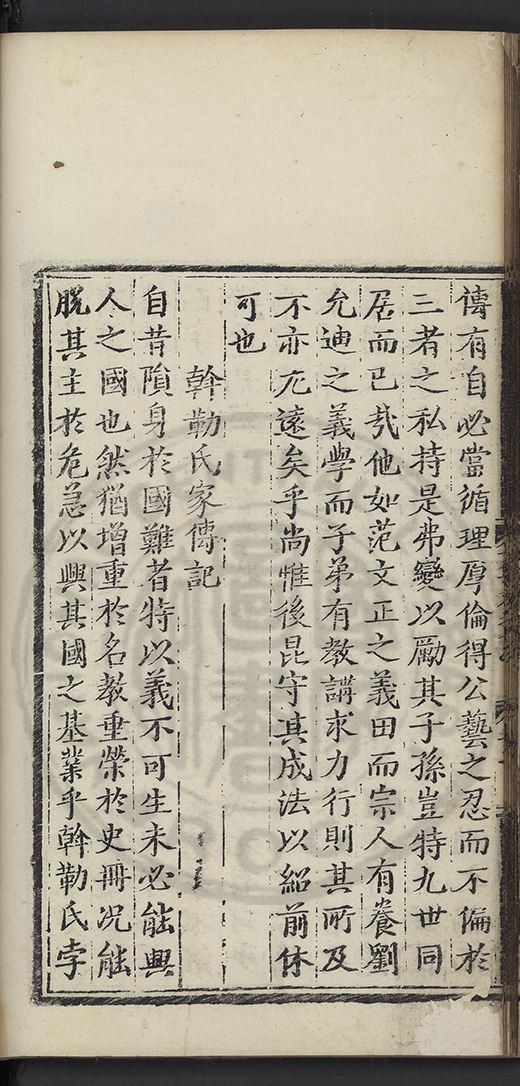 儔有自必當循理厚倫得公藝之忍而不偏於
三者之私持是弗變以勵其子孫豈特九世同
居而已㢤他如范文正之義田而宗人有養劉
允迪之義學而子弟有教講求力行則其所及
不亦尤遠矣乎尚惟後昆守其成法以紹前休
可也
斡勒氏家傳記
自昔隕身於國難者特以義不可生未必能興
人之國也然猶增重於名教垂榮於史冊况能
脫其主於危急以興其國之基業乎斡勒氏孛